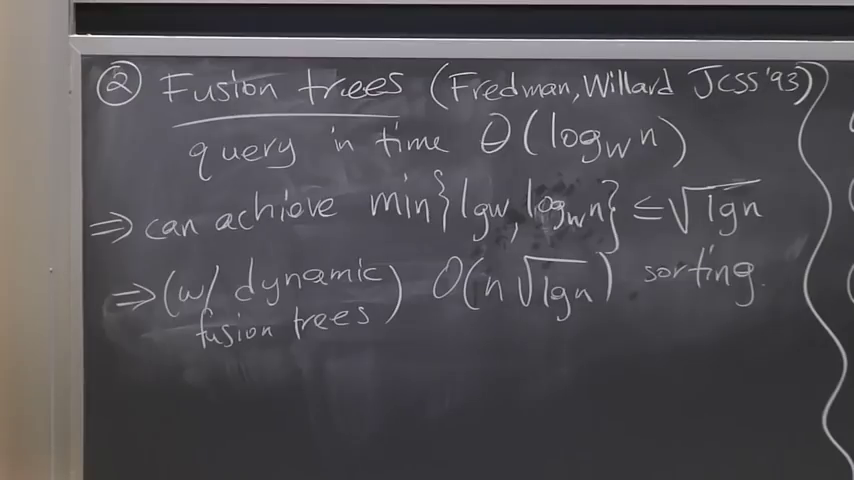 ② Fusion trees (Fredman, Willard JCSS '93)
query in time Θ(log_w n)
⇒ can achieve min{lg w, log_w n} ≤ √lg n
⇒ (w/ dynamic fusion trees) O(n √lg n) sorting.